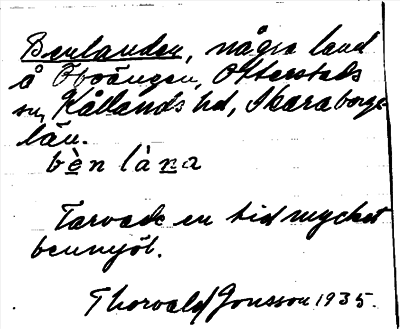 Benlanden, några land
å Tvoängen, Otterstads
sn, Kållands hd, Skaraborgs
län.
bèn làna
Tarvade en tid mycket
benmjöl.
Thorvald Jonsson 1935.